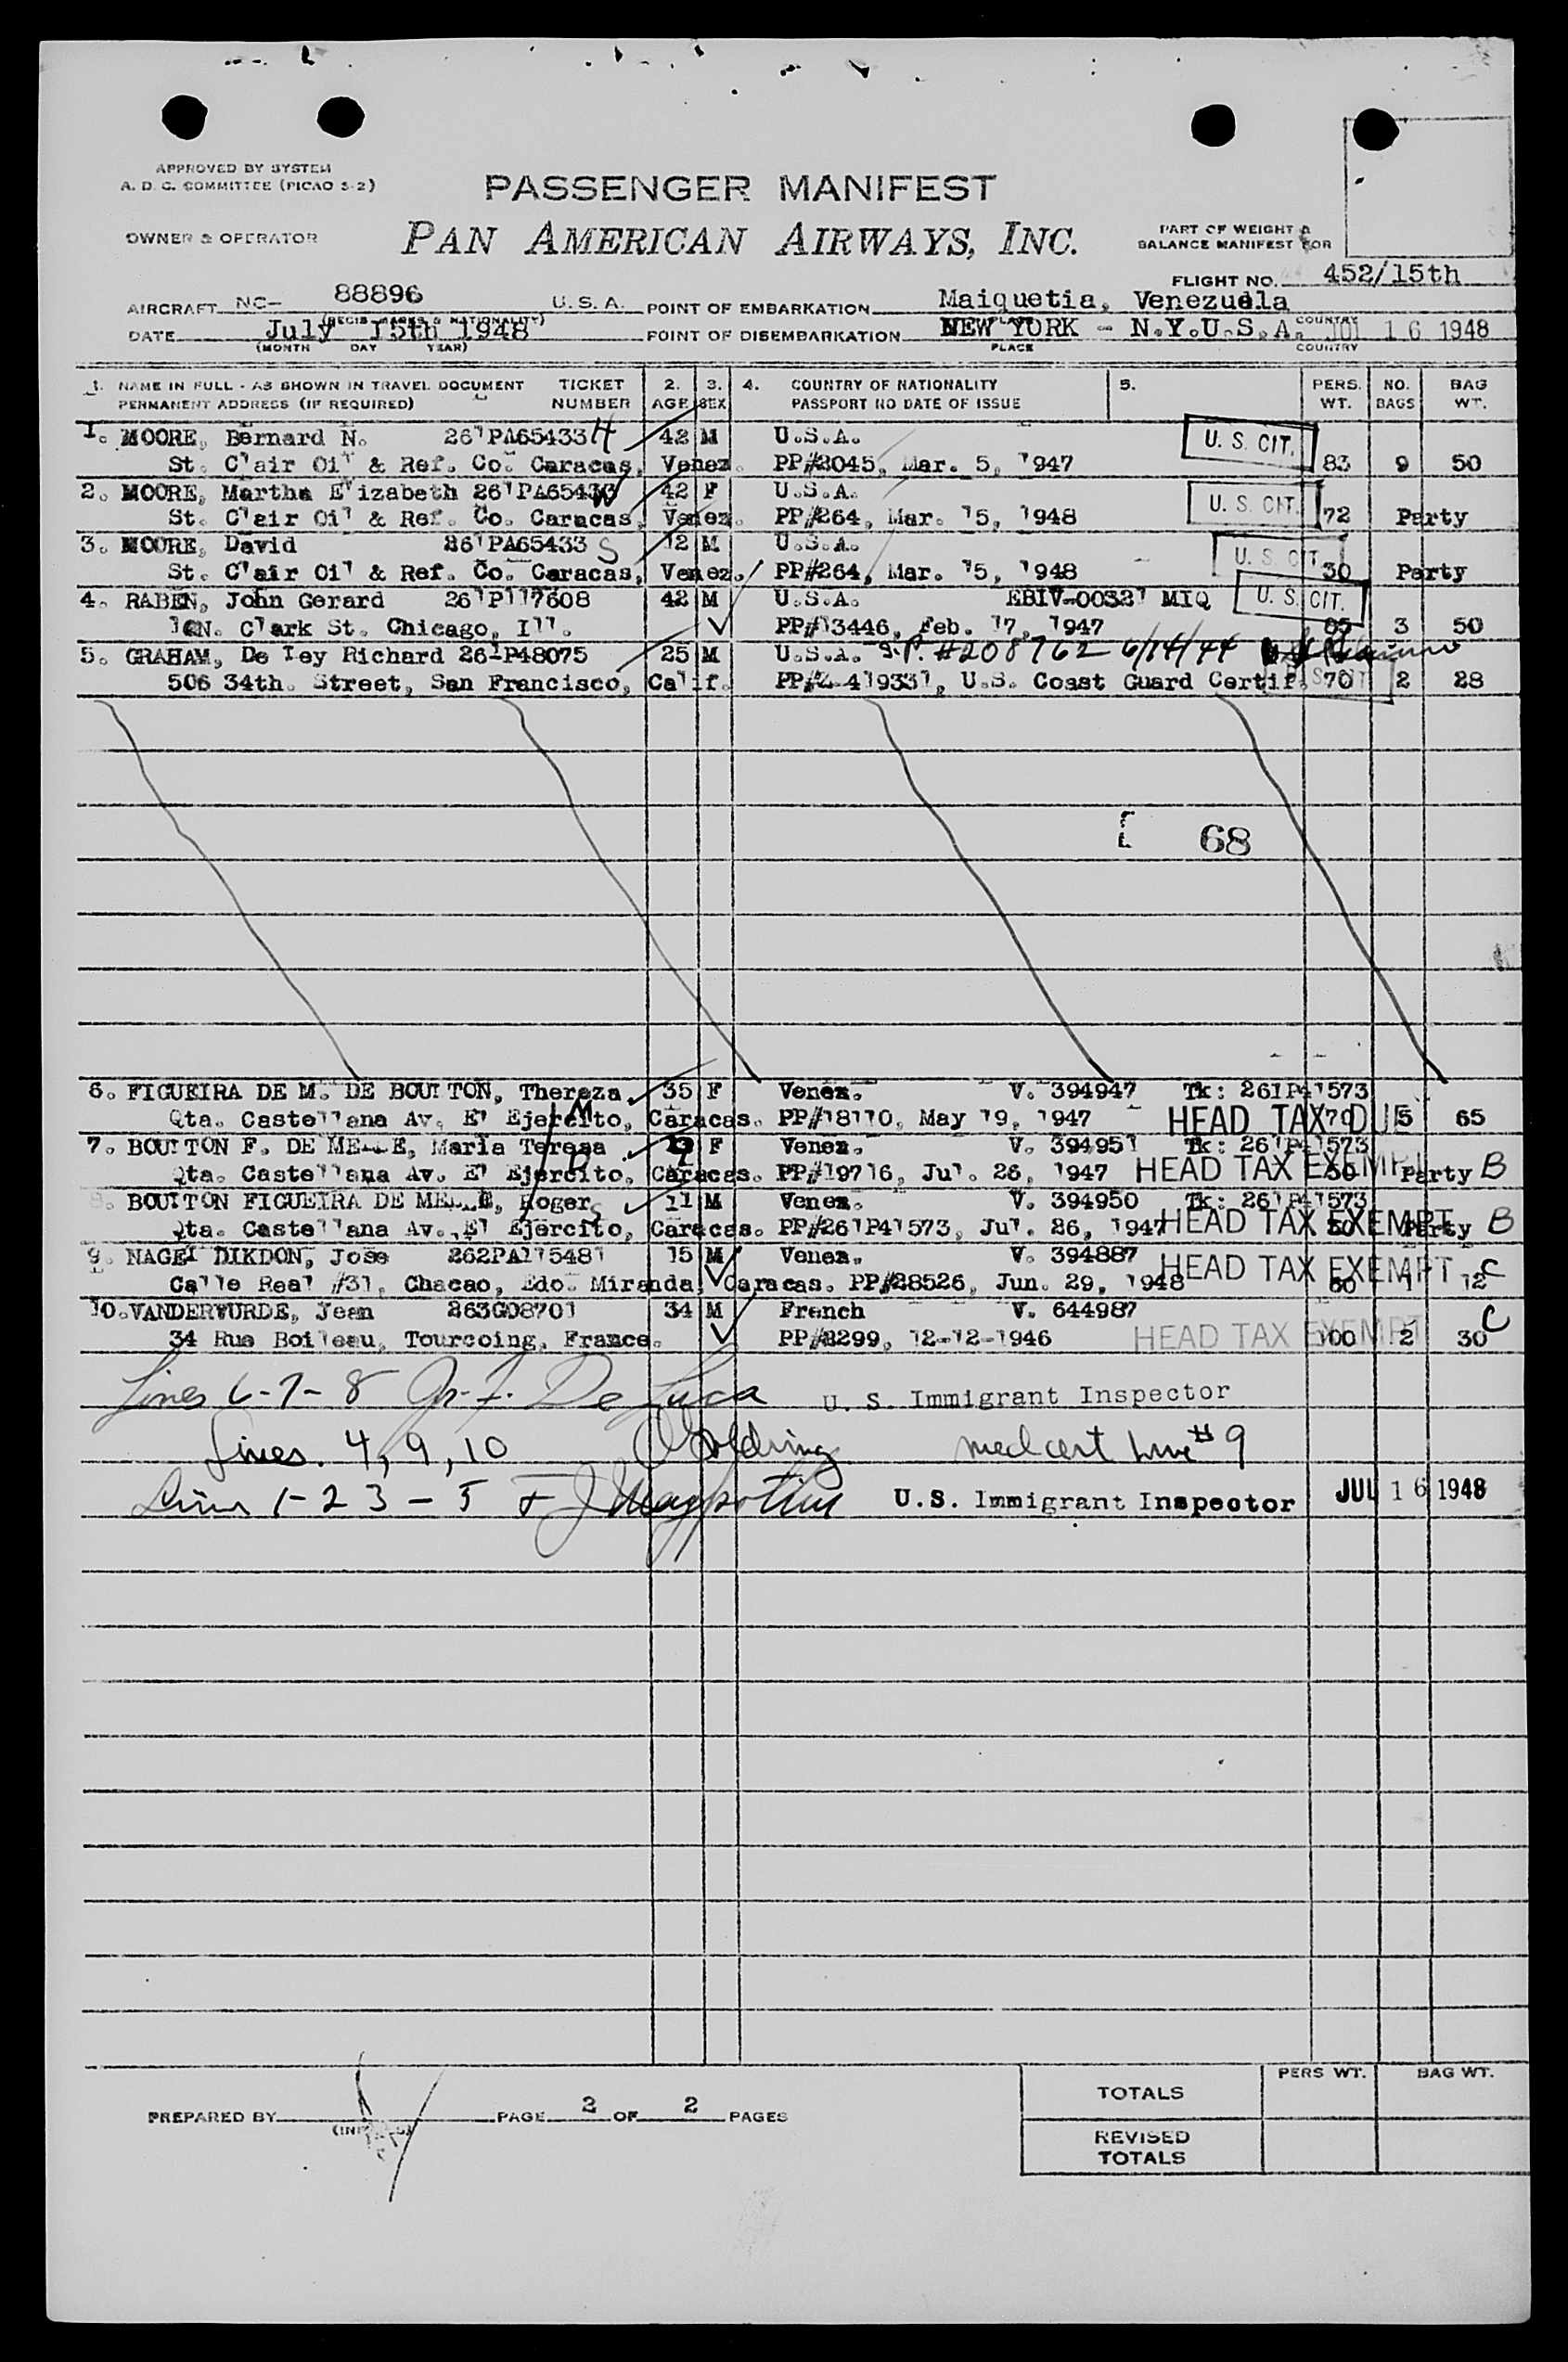 APPROVED BY SYSTEM
A. D. C. COMMITTEE (PICAO S-2)
PASSENGER MANIFEST
OWNER & OPERATOR
PAN AMERICAN AIRWAYS, INC.
PART OF WEIGHT &
BALANCE MANIFEST FOR
FLIGHT NO. 452/15th
AIRCRAFT NC- 88896 U.S.A. POINT OF EMBARKATION Maiquetia, Venezuela
(REGIS. MARKS & NATIONALITY) PLACE COUNTRY
DATE July 15th 1948 POINT OF DISEMBARKATION NEW YORK - N.Y.U.S.A. JUL 16 1948
(MONTH DAY YEAR) PLACE COUNTRY
1. NAME IN FULL - AS SHOWN IN TRAVEL DOCUMENT TICKET 2. 3. 4. COUNTRY OF NATIONALITY 5. PERS. NO. BAG
PERMANENT ADDRESS (IF REQUIRED) NUMBER AGE SEX PASSPORT NO DATE OF ISSUE WT. BAGS WT.
1. MOORE, Bernard N. 261PA65433 H 42 M U.S.A. U. S. CIT.
St. Clair Oil & Ref. Co. Caracas, Venez. PP#2045, Mar. 5, 1947 83 9 50
2. MOORE, Martha Elizabeth 261PA65433 W 42 F U.S.A. U. S. CIT.
St. Clair Oil & Ref. Co. Caracas, Venez. PP#264, Mar. 15, 1948 72 Party
3. MOORE, David 261PA65433 S 12 M U.S.A. U. S. CIT.
St. Clair Oil & Ref. Co. Caracas, Venez. PP#264, Mar. 15, 1948 30 Party
4. RABEN, John Gerard 261P117608 42 M U.S.A. EBIV-00321 MIQ U. S. CIT.
10N. Clark St. Chicago, Ill. PP#13446, Feb. 17, 1947 85 3 50
5. GRAHAM, De Ley Richard 261P48075 25 M U.S.A. S.P. #208762 6/14/44
506 34th. Street, San Francisco, Calif. PP#Z-419331, U.S. Coast Guard Certif. 70 2 28
68
6. FIGUEIRA DE M. DE BOULTON, Thereza. 35 F Venez. V. 394947 Tk: 261P41573
Qta. Castellana Av. El Ejercito, Caracas. PP#18110, May 19, 1947 HEAD TAX DUE 70 5 65
7. BOULTON F. DE MELLE, Maria Teresa F Venez. V. 394951 Tk: 261P41573
Qta. Castellana Av. El Ejercito, Caracas. PP#19716, Jul. 26, 1947 HEAD TAX EXEMPT 30 Party B
8. BOULTON FIGUEIRA DE MELLE, Roger S 11 M Venez. V. 394950 Tk: 261P41573
Qta. Castellana Av. El Ejercito, Caracas. PP#261P41573, Jul. 26, 1947 HEAD TAX EXEMPT 50 Party B
9. NAGEL DIKDON, Jose 262PA115481 15 M Venez. V. 394887
Calle Real #31, Chacao, Edo. Miranda, Caracas. PP#28526, Jun. 29, 1948 HEAD TAX EXEMPT 60 1 12 C
10. VANDERWURDE, Jean 263G08701 34 M French V. 644987
34 Rue Boileau, Tourcoing, France. PP#8299, 12-12-1946 HEAD TAX EXEMPT 100 2 30 C
Lines 6-7-8 De Luca U. S. Immigrant Inspector
Lines. 4, 9, 10 Golding med cert line #9
Lines 1-2 3-5 U.S. Immigrant Inspector JUL 16 1948
PREPARED BY PAGE 2 OF 2 PAGES
(INITIALS)
TOTALS PERS WT. BAG WT.
REVISED
TOTALS